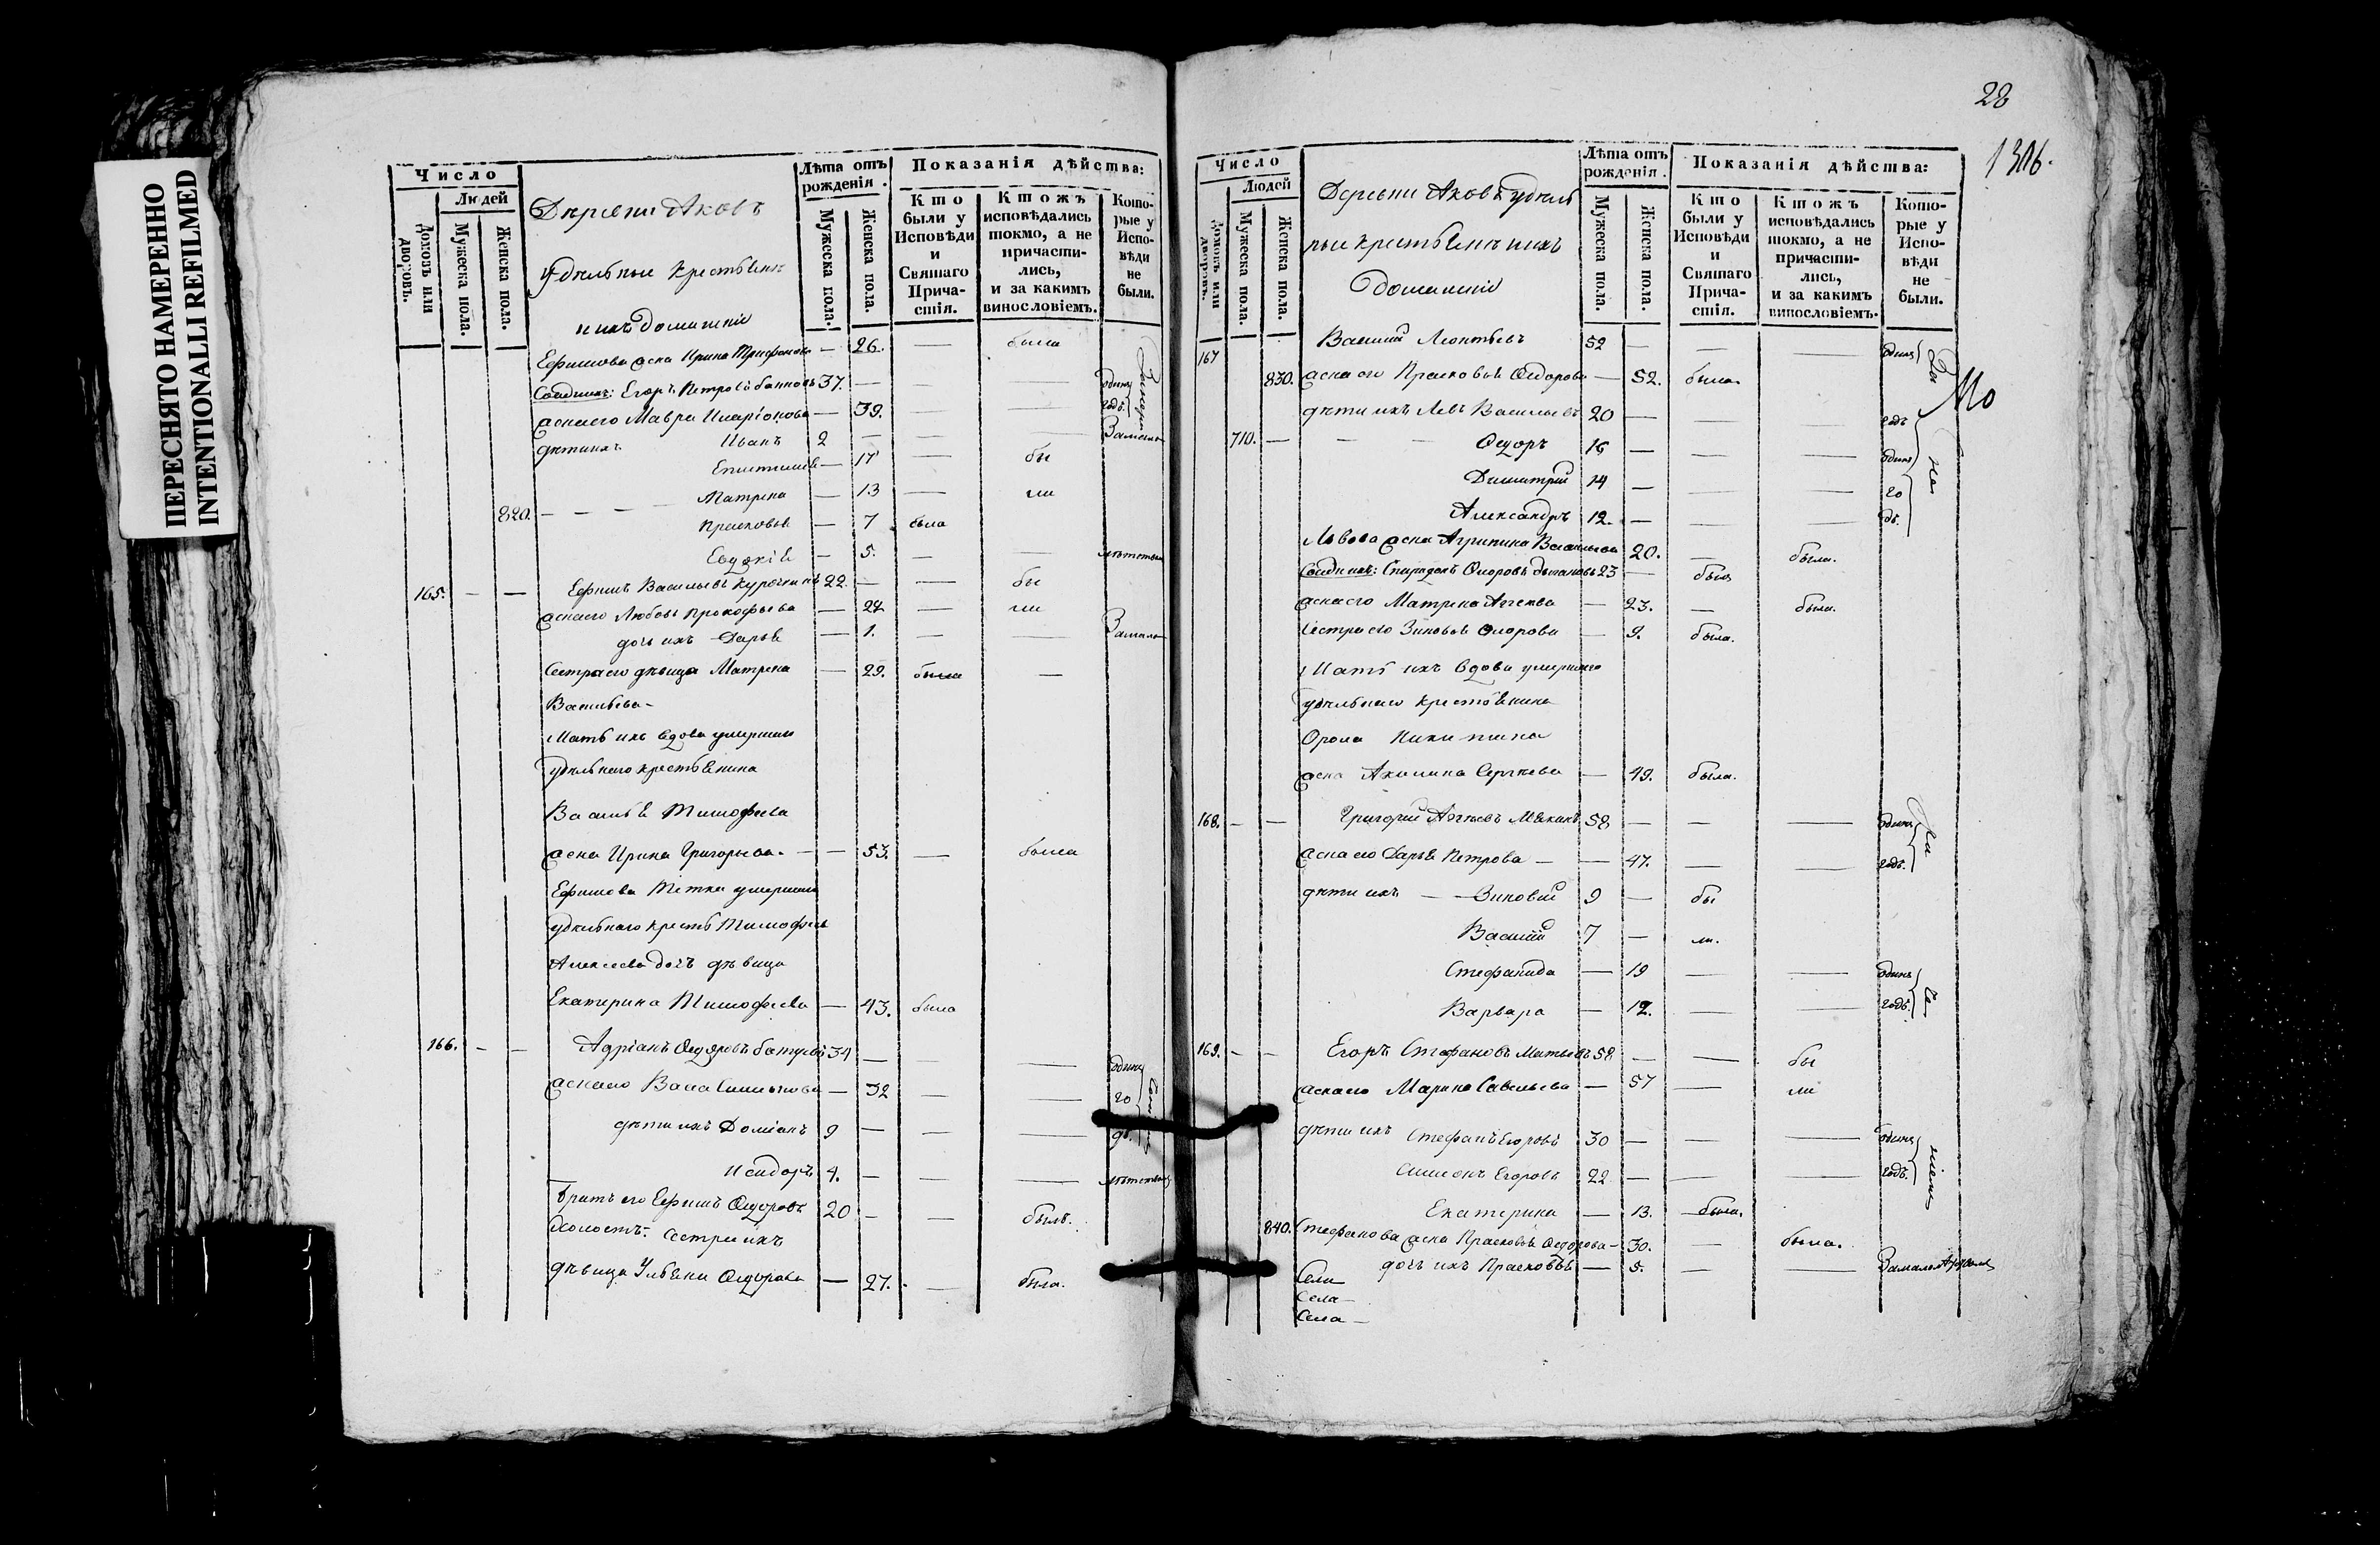 ПЕРЕСНЯТО НАМЕРЕННО
INTENTIONALLI REFILMED
Число
Людей
Домовъ или дворовъ.
Мужеска пола.
Женска пола.
Деревни Аковъ
удѣльные крестьяне
и ихъ домашніе
Лѣта отъ рожденія.
Мужеска пола.
Женска пола.
Показанія дѣйства:
Кто были у Исповѣди и Святаго Причастія.
Ктожъ исповѣдались токмо, а не причастились, и за какимъ винословіемъ.
Которые у Исповѣди не были.
Ефимова жена Ирина Трифонова — 26. — была
Сосѣдникъ: Егоръ Петровъ 37. — — — одинъ
жена его Мавра Иларіонова — 39. — годъ.
дѣти ихъ Иванъ 2 — — — Замалол
Епистимія — 17 — бы
Матрена — 13 — ли
820. — — — Прасковья — 7 была
Евдокія — 5. — — малолѣт
165. — — Ефимъ Васильевъ Курочкинъ 22. — — бы
жена его Любовь Прокофьева — 22 — ли
дочь ихъ Дарья — 1. — — Замало
Сестра его дѣвица Матрена — 29. была —
Васильева
Мать ихъ вдова умершаго
удѣльнаго крестьянина
Василья Тимофеева
жена Ирина Григорьева — — 53. — была
Ефимова тетка умершаго
удѣльнаго крестья Тимофея
Алексеева дочь дѣвица
Екатерина Тимофеева — 43. была
166. — — Адріанъ Ѳедоровъ 34 — — одинъ
жена его Васса Симонова — 32 — — го
дѣти ихъ Доміанъ 9 — — — дъ.
Исидоръ 4. — — —
братъ его Ефимъ Ѳедоровъ 20 — — былъ.
холостъ. Сестра ихъ
дѣвица Ульяна Ѳедорова — 27. — была.
28
1306.
Число
Людей
Домовъ или дворовъ.
Мужеска пола.
Женска пола.
Деревни Аковъ удѣль
ные крестьяне и ихъ
домашніе
Лѣта отъ рожденія.
Мужеска пола.
Женска пола.
Показанія дѣйства:
Кто были у Исповѣди и Святаго Причастія.
Ктожъ исповѣдались токмо, а не причастились, и за какимъ винословіемъ.
Которые у Исповѣди не были.
167 Василій Леонтьевъ 52 — — — одинъ
830. жена его Прасковья Ѳедорова — 52. была
дѣти ихъ Левъ Васильевъ 20 — — годъ
710. — — — Ѳедоръ 16 — — — одинъ
Димитрій 14 — — — го
Александръ 12. — — — дъ.
Львова жена Агрипина Васильева 20. — была.
Сосѣдникъ: Спиридонъ Ѳедоровъ 23 — былъ
жена его Матрена Авѣева — 23. — была.
Сестра его Зиновья Ѳедорова — 9. была.
Мать ихъ вдова умершаго
удѣльнаго крестьянина
Никитина
жена Акилина Сергѣева — 49. была.
168. — — Григорій Авѣевъ 58 — — — одинъ
жена его Дарья Петрова — — 47. — — годъ.
дѣти ихъ — Зиновій 9 — бы
Василій 7 — ли.
Стефанида — 19 — — одинъ
Варвара — 12. — — годъ.
169. — — Егоръ Стефановъ 58 — — бы
жена его Марина Савельева — 57 — ли
дѣти ихъ Стефанъ Егоровъ 30 — — — одинъ
Симеонъ Егоровъ 22 — — — годъ.
Екатерина — 13. была.
840. Стефанова жена Прасковья Ѳедорова — 30. — была.
дочь ихъ Прасковья — 5. — —
Села
Села
Села